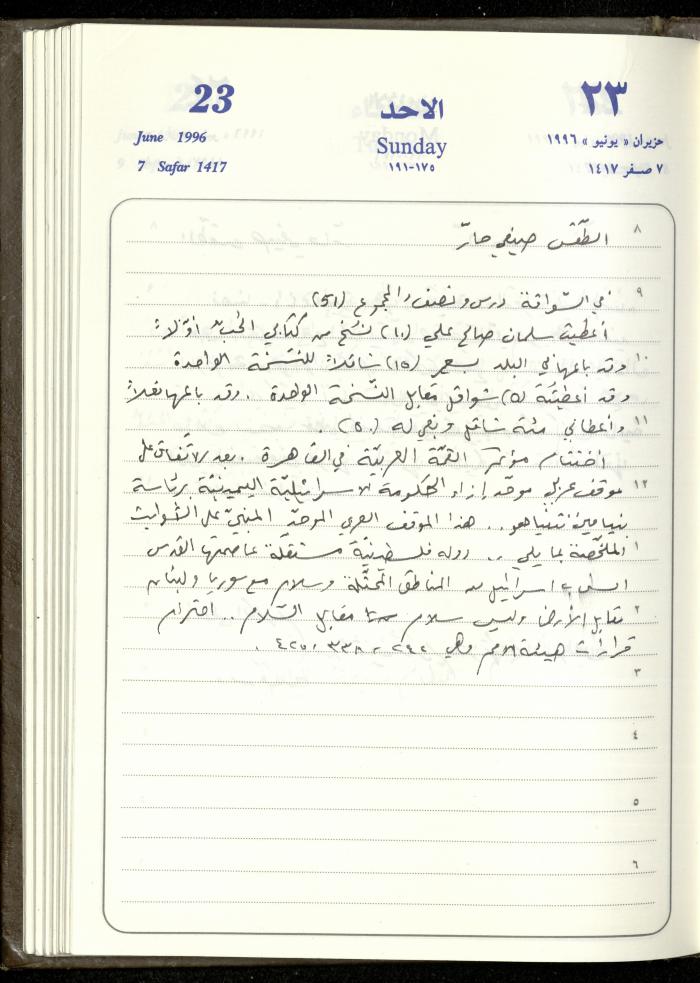 23 الاحد ٢٣
June 1996 Sunday حزيران « يونيو » ١٩٩٦
7 Safar 1417 ١٧٥-١٩١ ٧ صفر ١٤١٧
٨ الطّقس صيفي حارّ
٩ في السّواقة درس ونصف والمجموع (51)
أعطيت سلمان صالح علي (١٠) نسخ من كتابي الحبّ أوّلاً
١٠ وقد باعها في البلد بسعر (١٥) شاقلاً للنّسخة الواحدة
وقد أعطيته (٥) شواقل مقابل النّسخة الواحدة . وقد باعها نقلاً
١١ وأعطاني مئة شاقل وبقي له (٥٠)
اختتام مؤتمر القمّة العربيّة في القاهرة . بعد الاتّفاق على
١٢ موقف عربي موحّد إزاء الحكومة الاسرائيليّة اليمينيّة برئاسة
بنيامين نتنياهو .. هذا الموقف العربي الموحّد المبنيّ على الثّوابت
١ الملخّصة بما يلي .. دولة فلسطينيّة مستقلّة عاصمتها القدس
اسرائيل من المناطق المحتلّة وسلام مع سوريا ولبنان
٢ مقابل الأرض وليس سلام مقابل السّلام .. احترام
قرارات هيئة الأمم وهي ٢٤٢ ، ٣٣٨ ، ٤٢٥ .
٣
٤
٥
٦